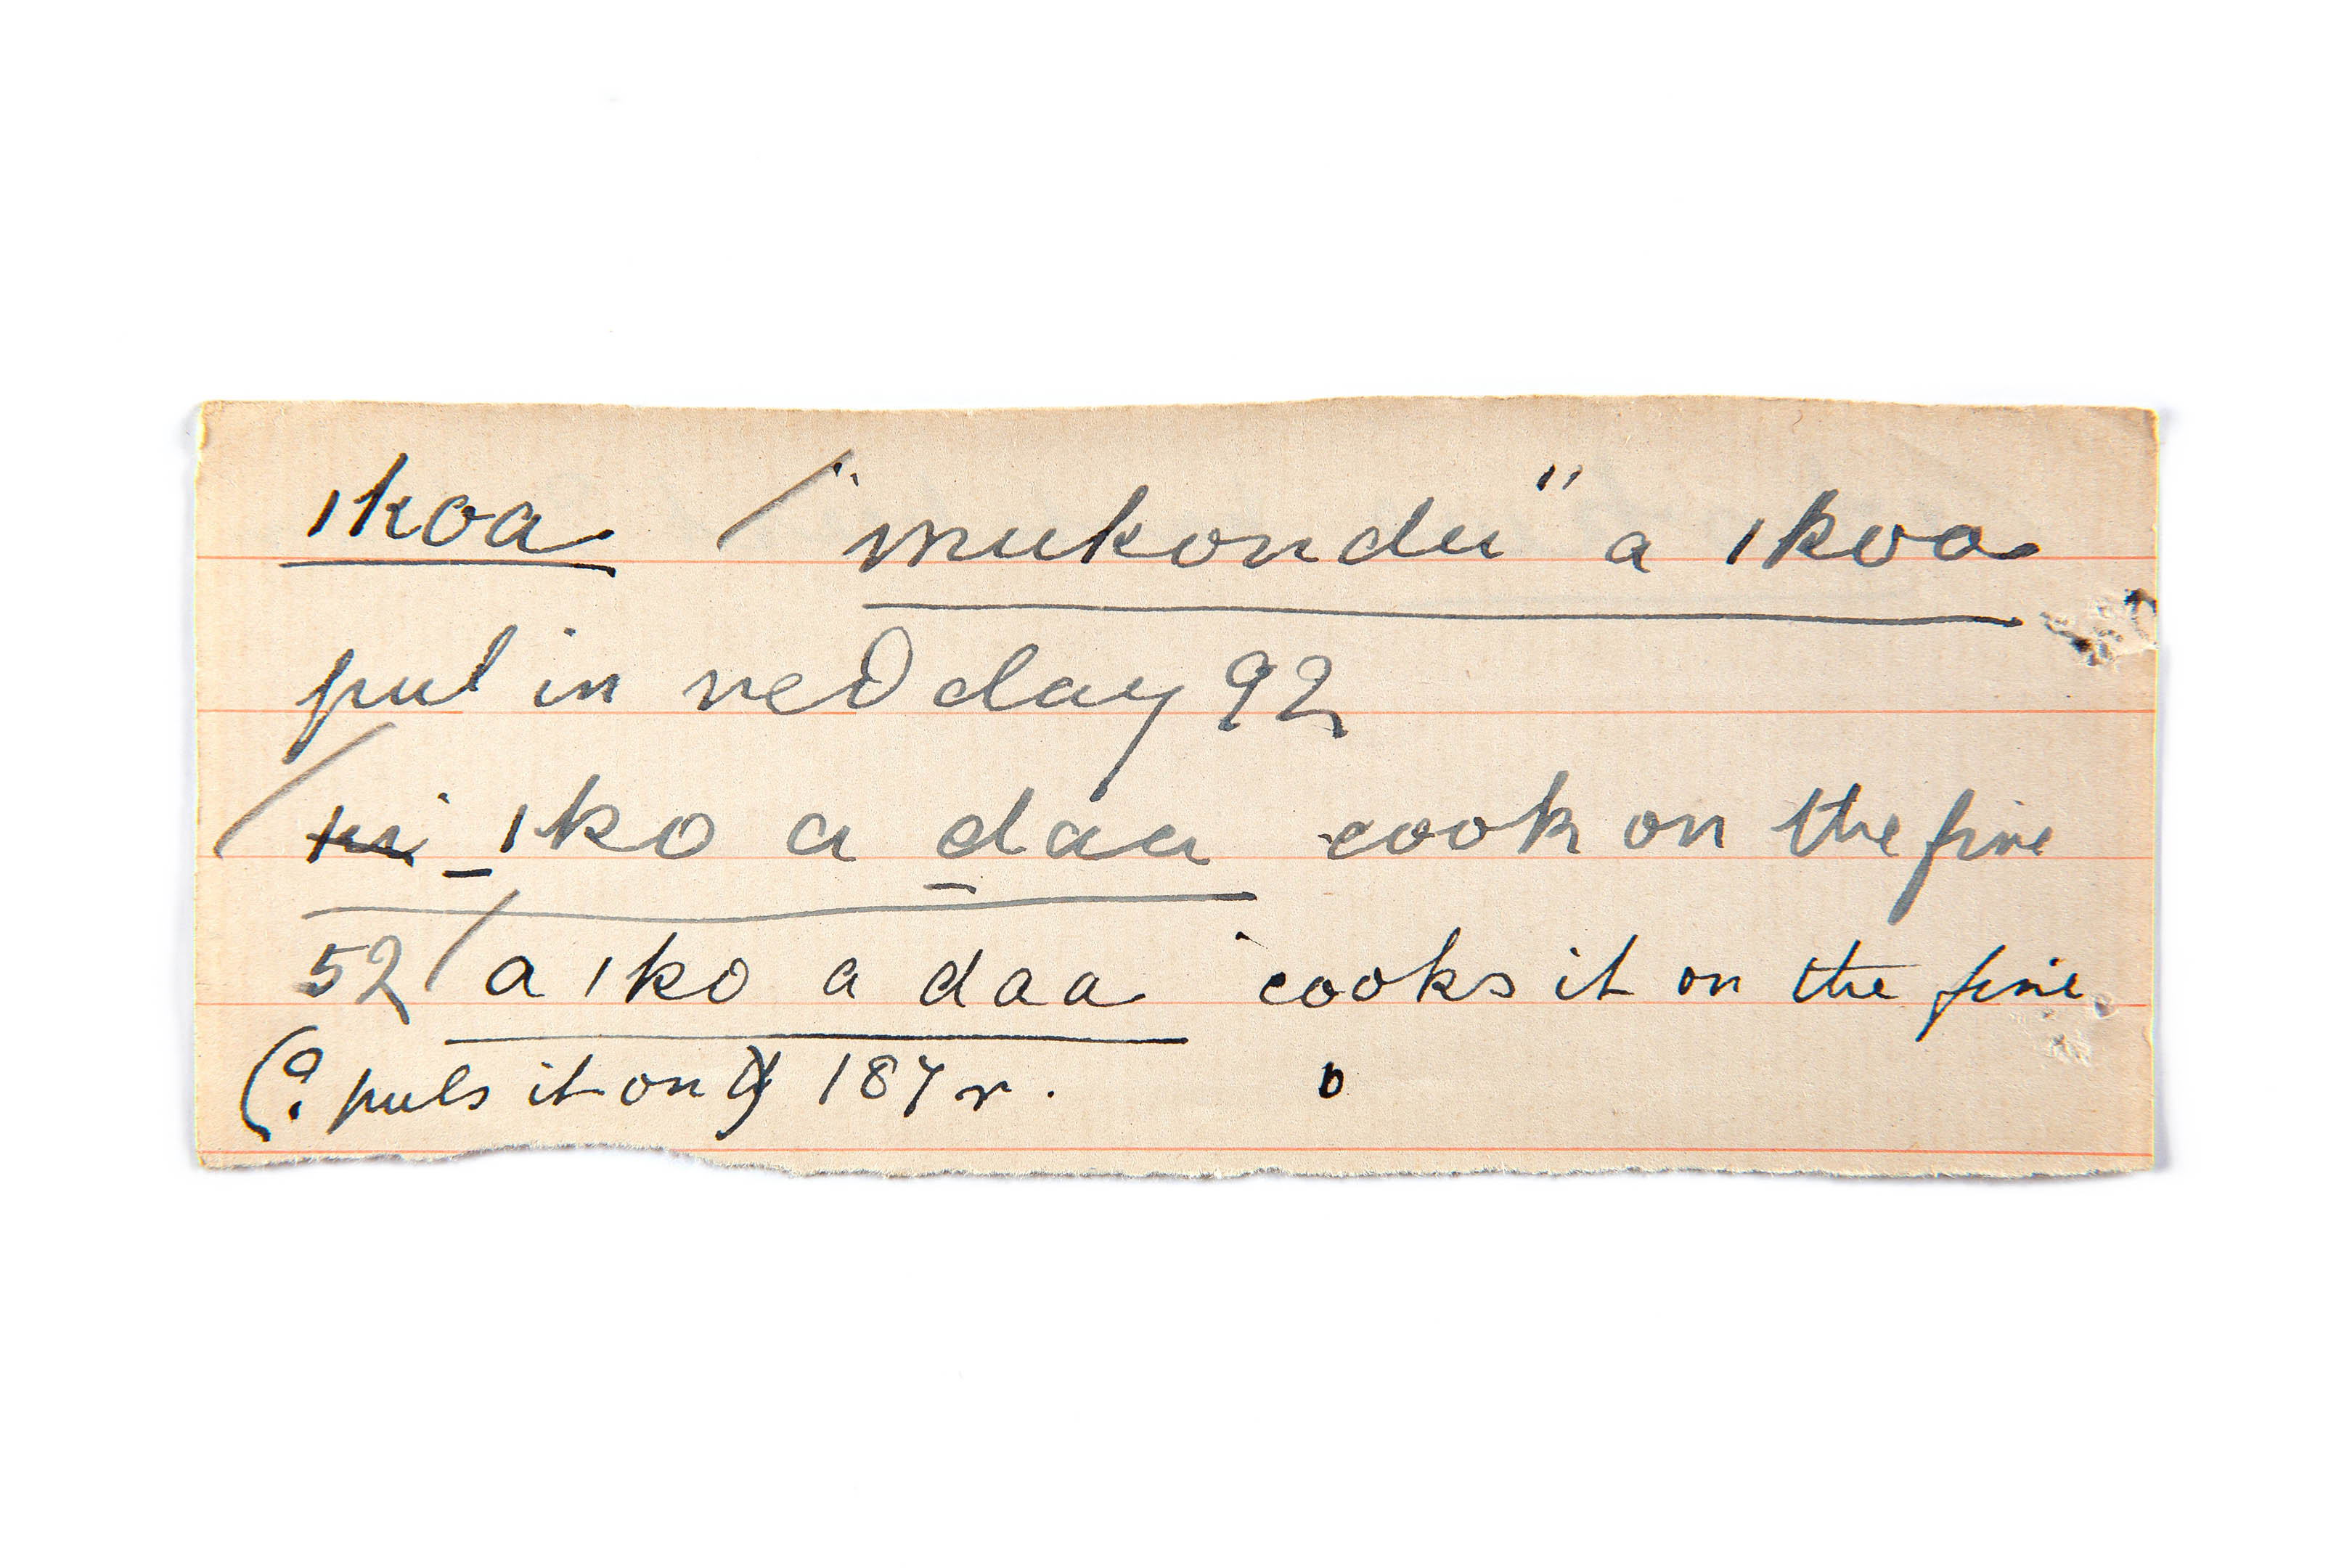 ıkoa / "mukondu" a ıkoa
put in red clay 92
/ ıko a daa cook on the fire
52 / a ıko a daa cooks it on the fire
(? puts it on) 187 r.